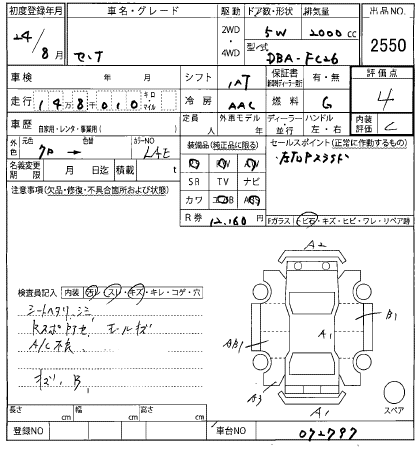 初度登録年月 車名・グレード 駆動 ドア数・形状 排気量 出品NO.
24/8月 セレナ 2WD・4WD 5W 2000cc 2550
型式 DBA-FC26
車検 年 月 シフト IAT 保証書 有・無 評価点 4
走行 148,010 キロ・マイル 冷房 AAC 燃料 G
車歴 自家用・レンタ・事業用( ) 定員 人 外車モデル 年 ディーラー・並行 ハンドル 左・右 内装評価 C
外色 元色 クロ → 色替 カラーNO
装備品(純正品に限る) セールスポイント(正常に作動するもの)
名義変更期限 月 日迄 積載 t
SR TV ナビ
注意事項(欠品・修復・不具合箇所および状態)
カワ エアB
R券 12,160円
Fガラス(トビ石・キズ・ヒビ・ワレ・リペア跡
A2
検査員記入 内装(汚レ・スレ・キズ・キレ・コゲ・穴
シートヘタリ、シミ
A/C不良
キズ、B
B1
A1
AB1
A3
A1
スペア
長さ cm 幅 cm 高さ cm
登録NO 車台NO 072797